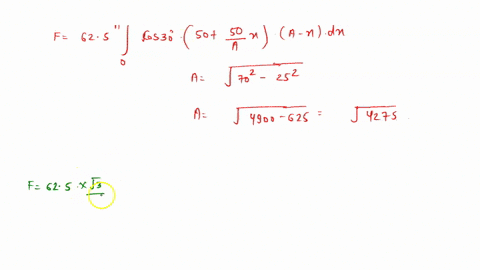 F= 62.5 ∫₀" Cos30° . (50+ 50/A x) . (A-x).dx
A= √70² - 25²
A= √4900-625 = √4275
F= 62.5 × √3